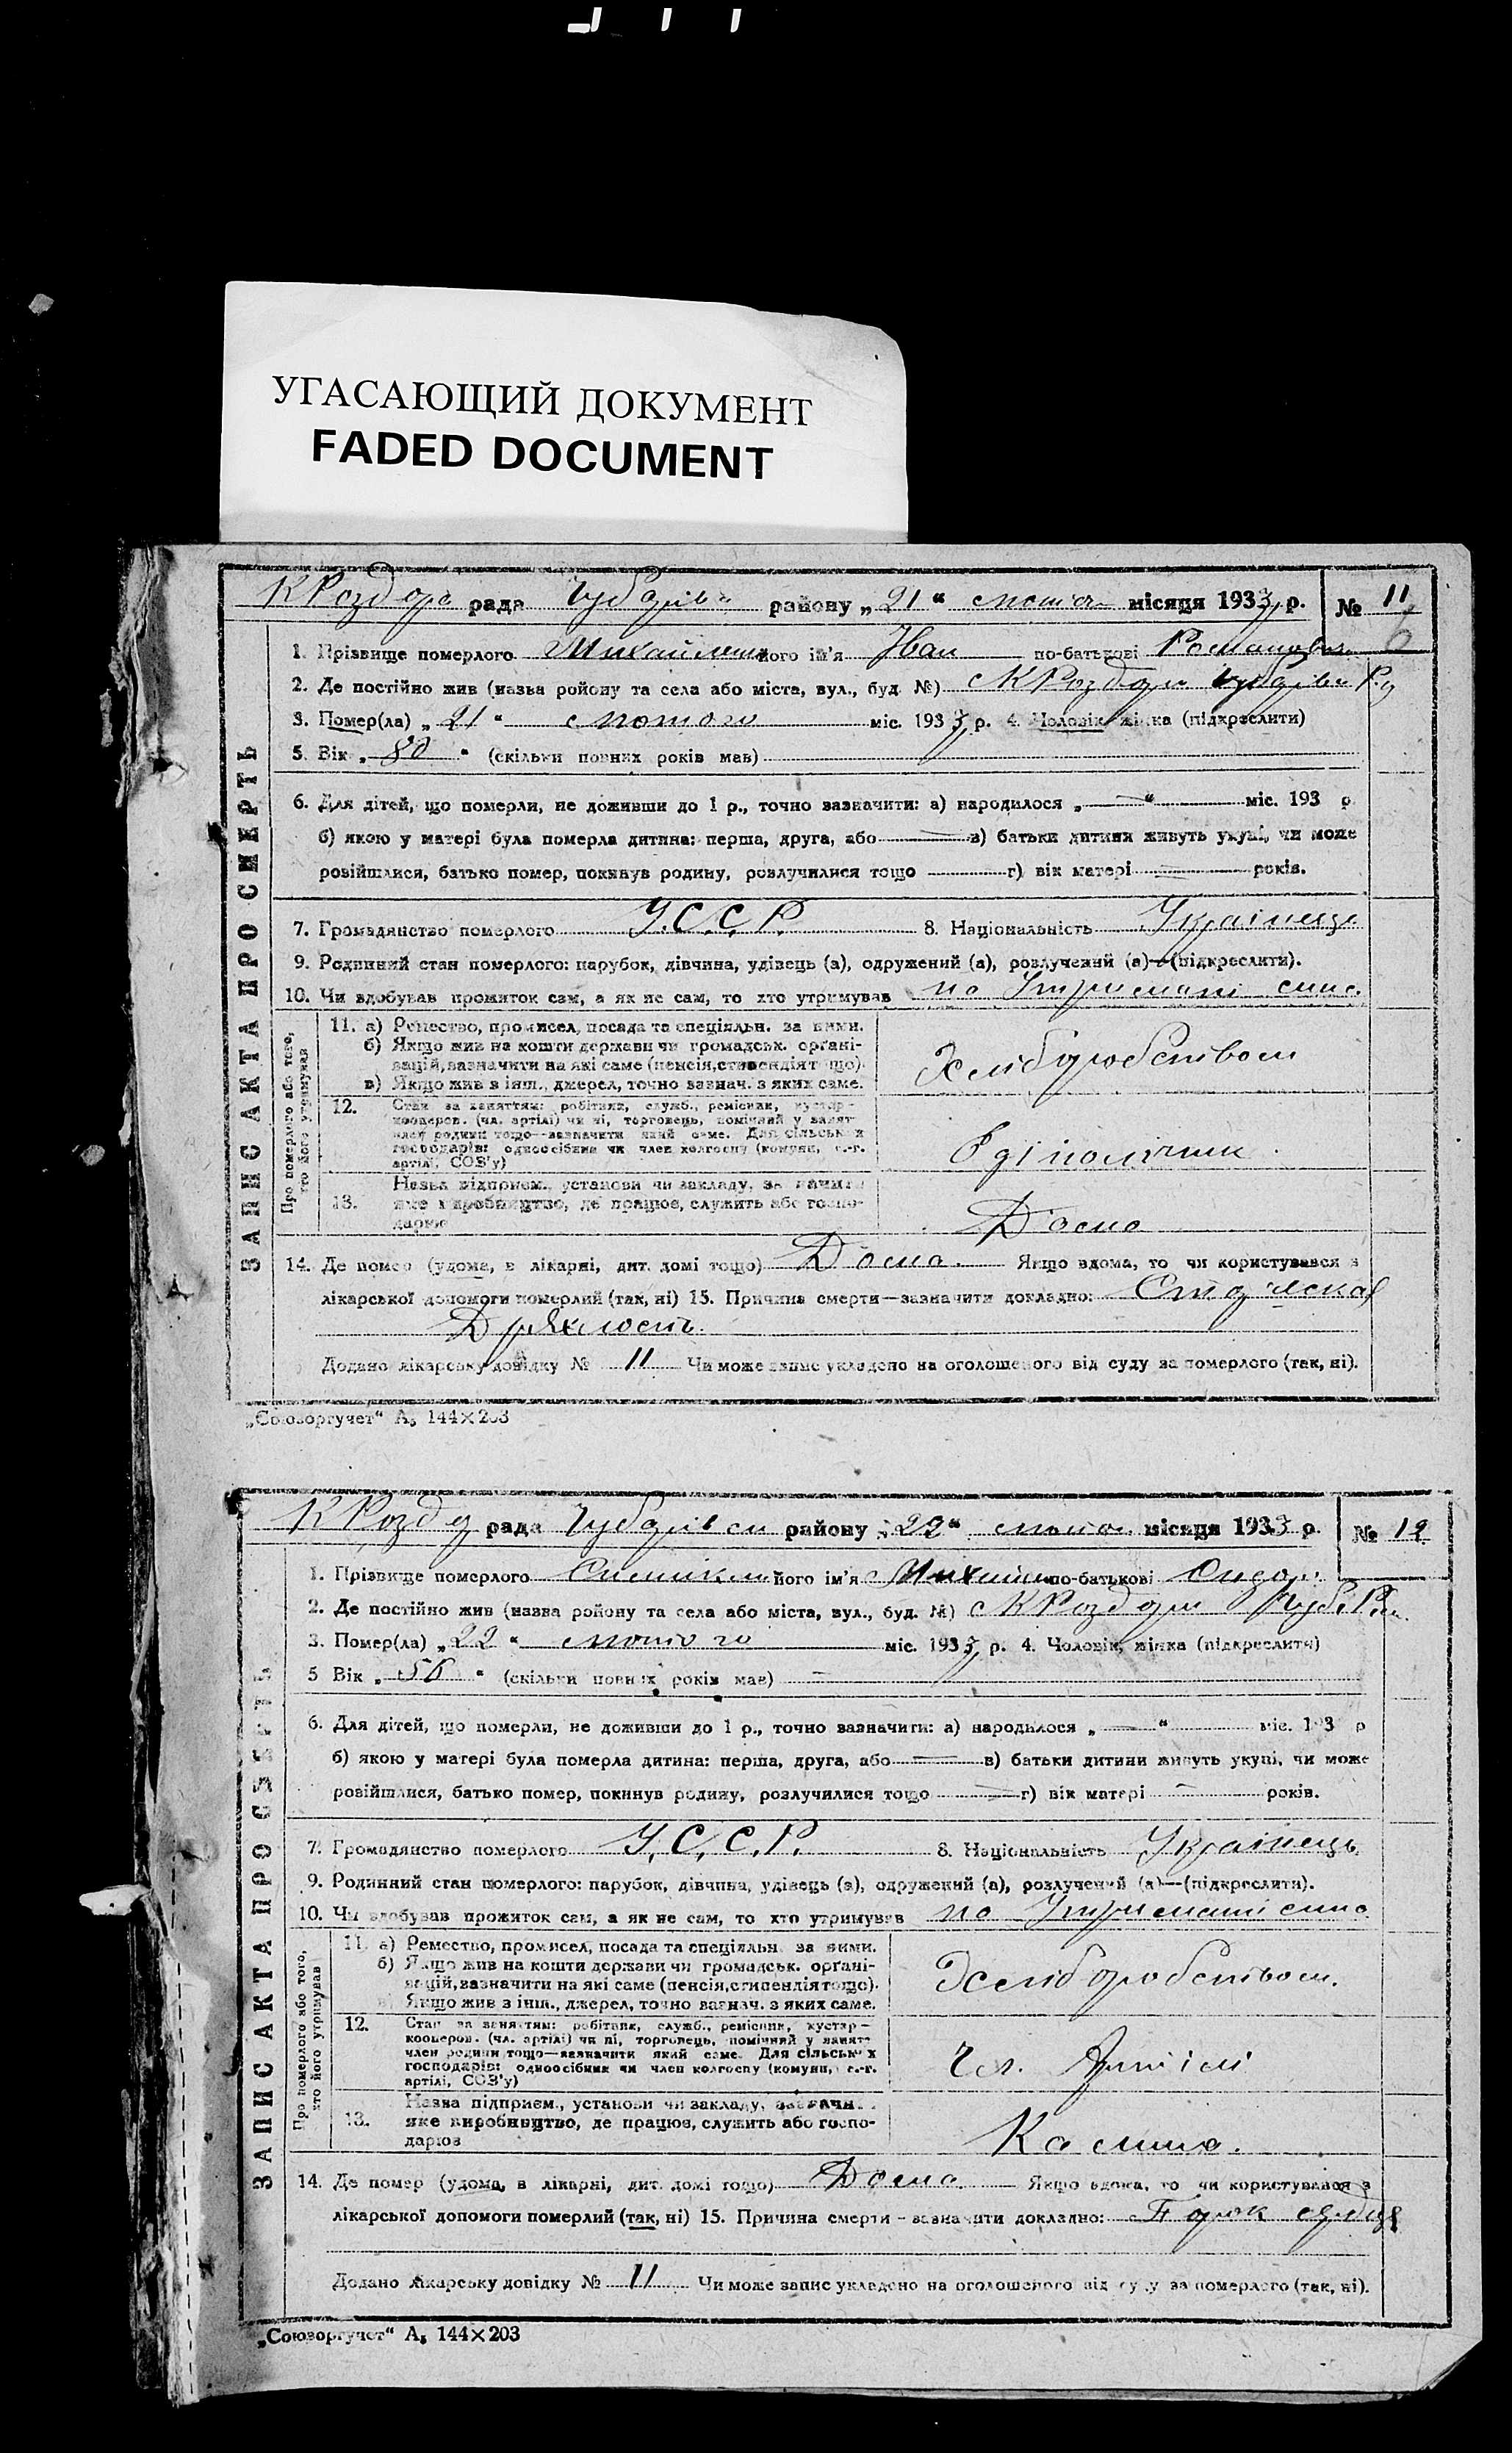 УГАСАЮЩИЙ ДОКУМЕНТ
FADED DOCUMENT
К Роздора рада Чубарівс району „21“ лютого місяця 1933 р. № 11
6
1. Прізвище померлого Михайленко його ім'я Іван по-батькові Романович
2. Де постійно жив (назва ройону та села або міста, вул., буд. №) с К Роздори Чубарівс Р-у
3. Помер(ла) „21“ лютого міс. 1933 р. 4. Чоловік, жінка (підкреслити)
5. Вік „80“ (скільки повних років мав)
6. Для дітей, що померли, не доживши до 1 р., точно зазначити: а) народилося „—“ міс. 193 р.
б) якою у матері була померла дитина: перша, друга, або — в) батьки дитини живуть укупі, чи може
розійшлися, батько помер, покинув родину, розлучилися тощо — г) вік матері — років.
7. Громадянство померлого У.С.С.Р. 8. Національність Українець
9. Родинний стан померлого: парубок, дівчина, удівець (а), одружений (а), розлучений (а)—(підкреслити).
10. Чи здобував прожиток сам, а як не сам, то хто утримував на Утриманні сина
ЗАПИС АКТА ПРО СМЕРТЬ
Про померлого або того, хто його утримував
11. а) Ремество, промисел, посада та спеціяльн. за ними.
б) Якщо жив на кошти держави чи громадськ. органі-
зацій, зазначити на які саме (пенсія, стипендія тощо).
в) Якщо жив з інш., джерел, точно зазнач. з яких саме.
Хліборобством
12. Стан за заняттям: робітник, служб., ремісник, кустар-
кооперов. (чл. артілі) чи ні, торговець, помічний у занят-
член родини тощо—зазначити який саме. Для сільських
господарів: одноосібник чи член колгоспу (комуни, с.-г.
артілі, СОЗ'у)
13. Назва підприєм., установи чи закладу, зазначити
яке виробництво, де працює, служить або госпо-
дарює
Дома
14. Де помер (удома, в лікарні, дит. домі тощо) Дома. Якщо вдома, то чи користувався з
лікарської допомоги померлий (так, ні) 15. Причина смерти—зазначити докладно: Старческая
Дряхлость.
Додано лікарську довідку № 11 Чи може запис укладено на оголошеного від суду за померлого (так, ні).
„Союзоргучет“ А₅ 144×203
К Розд рада Чубарівсь району „22“ лютого місяця 1933 р. № 12
1. Прізвище померлого його ім'я Михайло по-батькові
2. Де постійно жив (назва ройону та села або міста, вул., буд. №) с К Роздори Чуб. Р-н.
3. Помер(ла) „22“ лютого міс. 1933 р. 4. Чоловік, жінка (підкреслити)
5 Вік „56“ (скільки повних років мав) —
6. Для дітей, що померли, не доживши до 1 р., точно зазначити: а) народилося „—“ міс. 193 р
б) якою у матері була померла дитина: перша, друга, або — в) батьки дитини живуть укупі, чи може
розійшлися, батько помер, покинув родину, розлучилися тощо — г) вік матері — років.
7. Громадянство померлого У.С.С.Р. 8. Національність Українець
9. Родинний стан померлого: парубок, дівчина, удівець (а), одружений (а), розлучений (а)—(підкреслити).
10. Чи здобував прожиток сам, а як не сам, то хто утримував на Утриманні сина
ЗАПИС АКТА ПРО СМЕРТЬ
Про померлого або того, хто його утримував
11. а) Ремество, промисел, посада та спеціяльн. за ними.
б) Якщо жив на кошти держави чи громадськ. органі-
зацій, зазначити на які саме (пенсія, стипендія тощо).
Якщо жив з інш., джерел, точно зазнач. з яких саме.
Хліборобством.
12. Стан за заняттям: робітник, служб., ремісник, кустар-
кооперов. (чл. артілі) чи ні, торговець, помічний у занят-
член родини тощо—зазначити який саме. Для сільських
господарів: одноосібник чи член колгоспу (комуни, с.-г.
артілі, СОЗ'у)
Чл. Артілі
13. Назва підприєм., установи чи закладу, зазначи
яке виробництво, де працює, служить або госпо-
дарює
14. Де помер (удома, в лікарні, дит. домі тощо) Дома. Якщо вдома, то чи користувався з
лікарської допомоги померлий (так, ні) 15. Причина смерти—зазначити докладно: Порок сердця
Додано лікарську довідку № 11 Чи може запис укладено на оголошеного від суду за померлого (так, ні).
„Союзоргучет“ А₅ 144×203